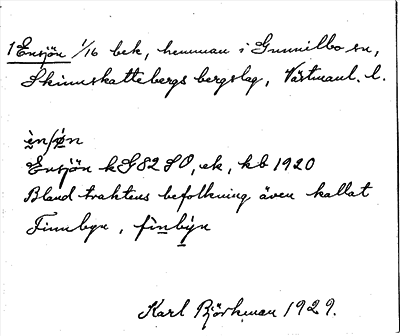 1 Ensjön 1/16 bek, hemman i Gunnilbo sn,
Skinnskattebergs bergslag, Västmanl. l.
ènʃø̀n
Ensjön k G 82 SO, ek, kb 1920
Bland traktens befolkning även kallat
Finnbyn, fìnbỳn
Karl Björkman 1929.